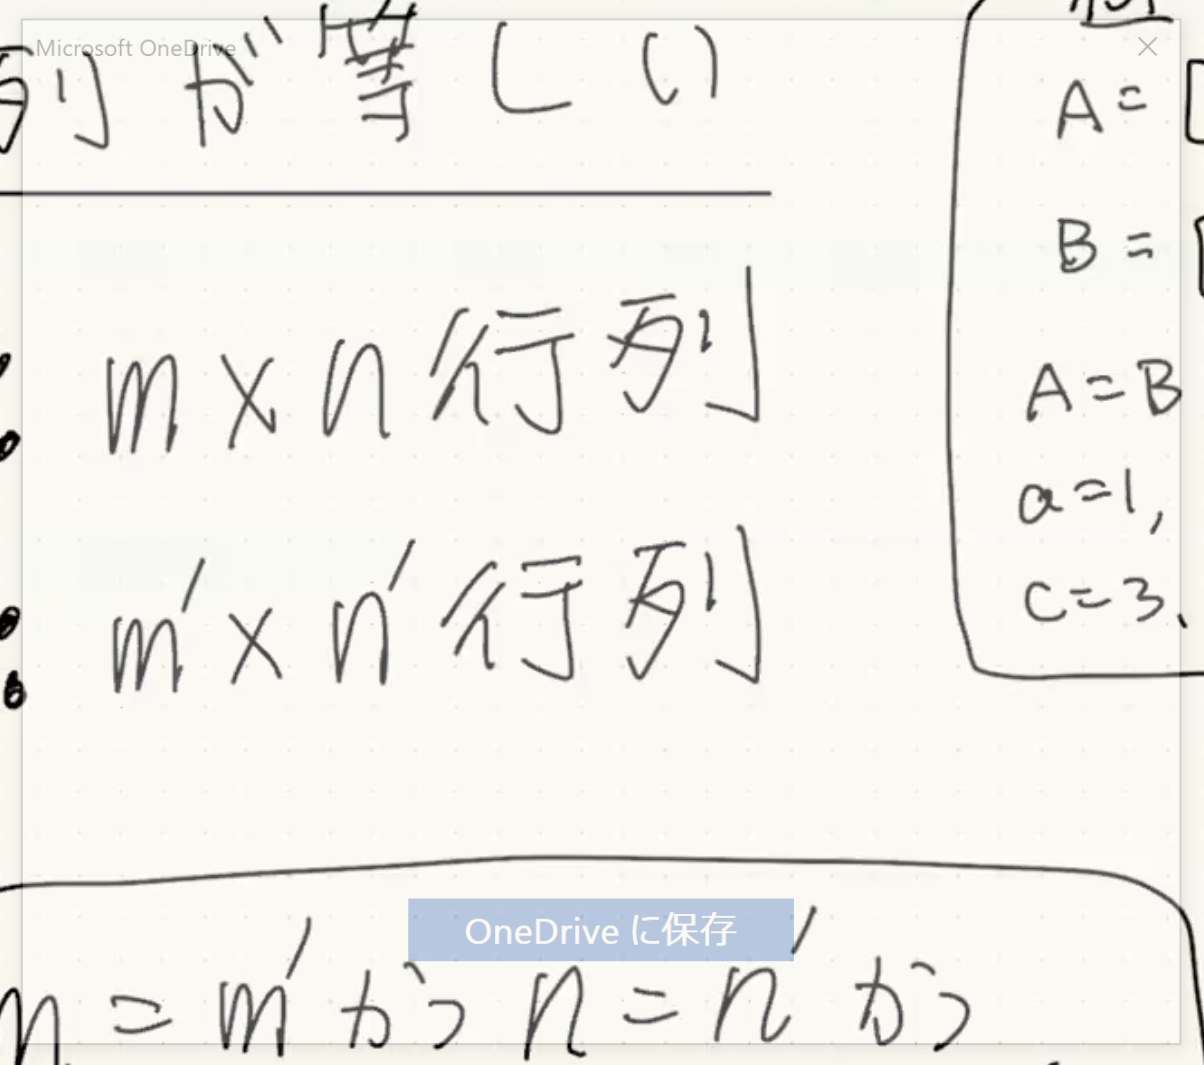 Microsoft OneDrive
列が等しい
m×n行列
m'×n'行列
A=
B=
A=B
a=1,
c=3、
OneDrive に保存
m=m'かつn=n'かつ